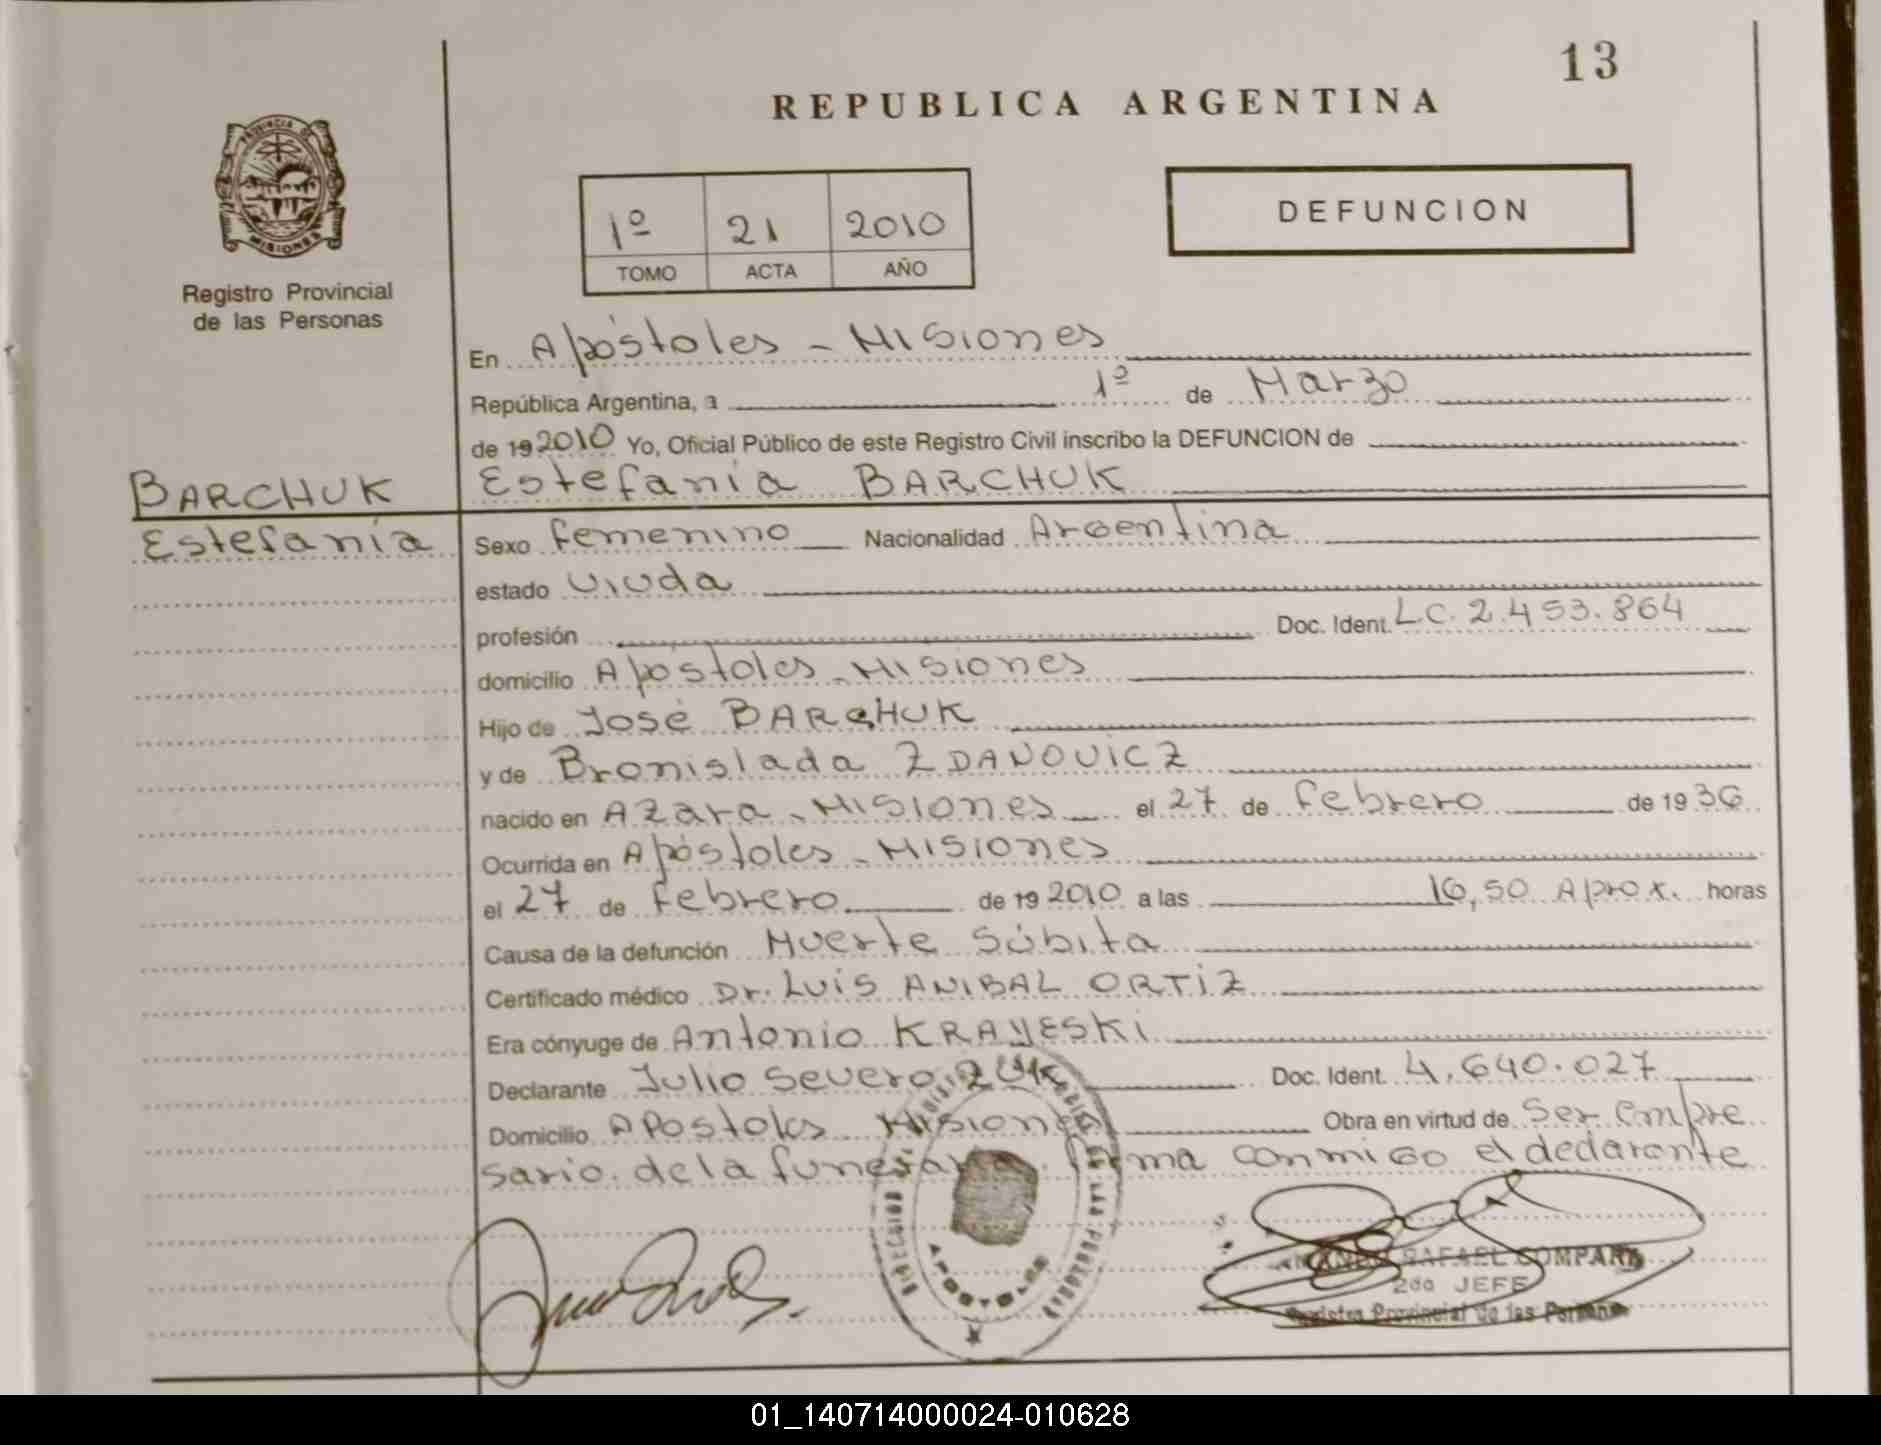 13
REPUBLICA ARGENTINA
PROVINCIA DE
MISIONES
1º 21 2010
TOMO ACTA AÑO
DEFUNCION
Registro Provincial
de las Personas
En Apóstoles - Misiones
República Argentina, a 1º de Marzo
de 19 2010 Yo, Oficial Público de este Registro Civil inscribo la DEFUNCION de
BARCHUK Estefanía BARCHUK
Estefanía Sexo femenino Nacionalidad Argentina
estado viuda
profesión Doc. Ident. LC. 2.453.864
domicilio Apostoles - Misiones
Hijo de José BARCHUK
y de Bronislada ZDANOVICZ
nacido en Azara - Misiones el 27 de febrero de 19 36
Ocurrida en Apóstoles - Misiones
el 27 de febrero de 19 2010 a las 16,50 Aprox. horas
Causa de la defunción Muerte Súbita
Certificado médico Dr. LUIS ANIBAL ORTIZ
Era cónyuge de Antonio KRAYESKI
Declarante Julio Severo ZUK Doc. Ident. 4.640.027
Domicilio Apostoles Misiones Obra en virtud de Ser Empre
sario de la funeraria. firma conmigo el declarante
APOSTOLES
RAFAEL COMPAR
2do JEFE
Registro Provincial de las Personas
01_140714000024-010628